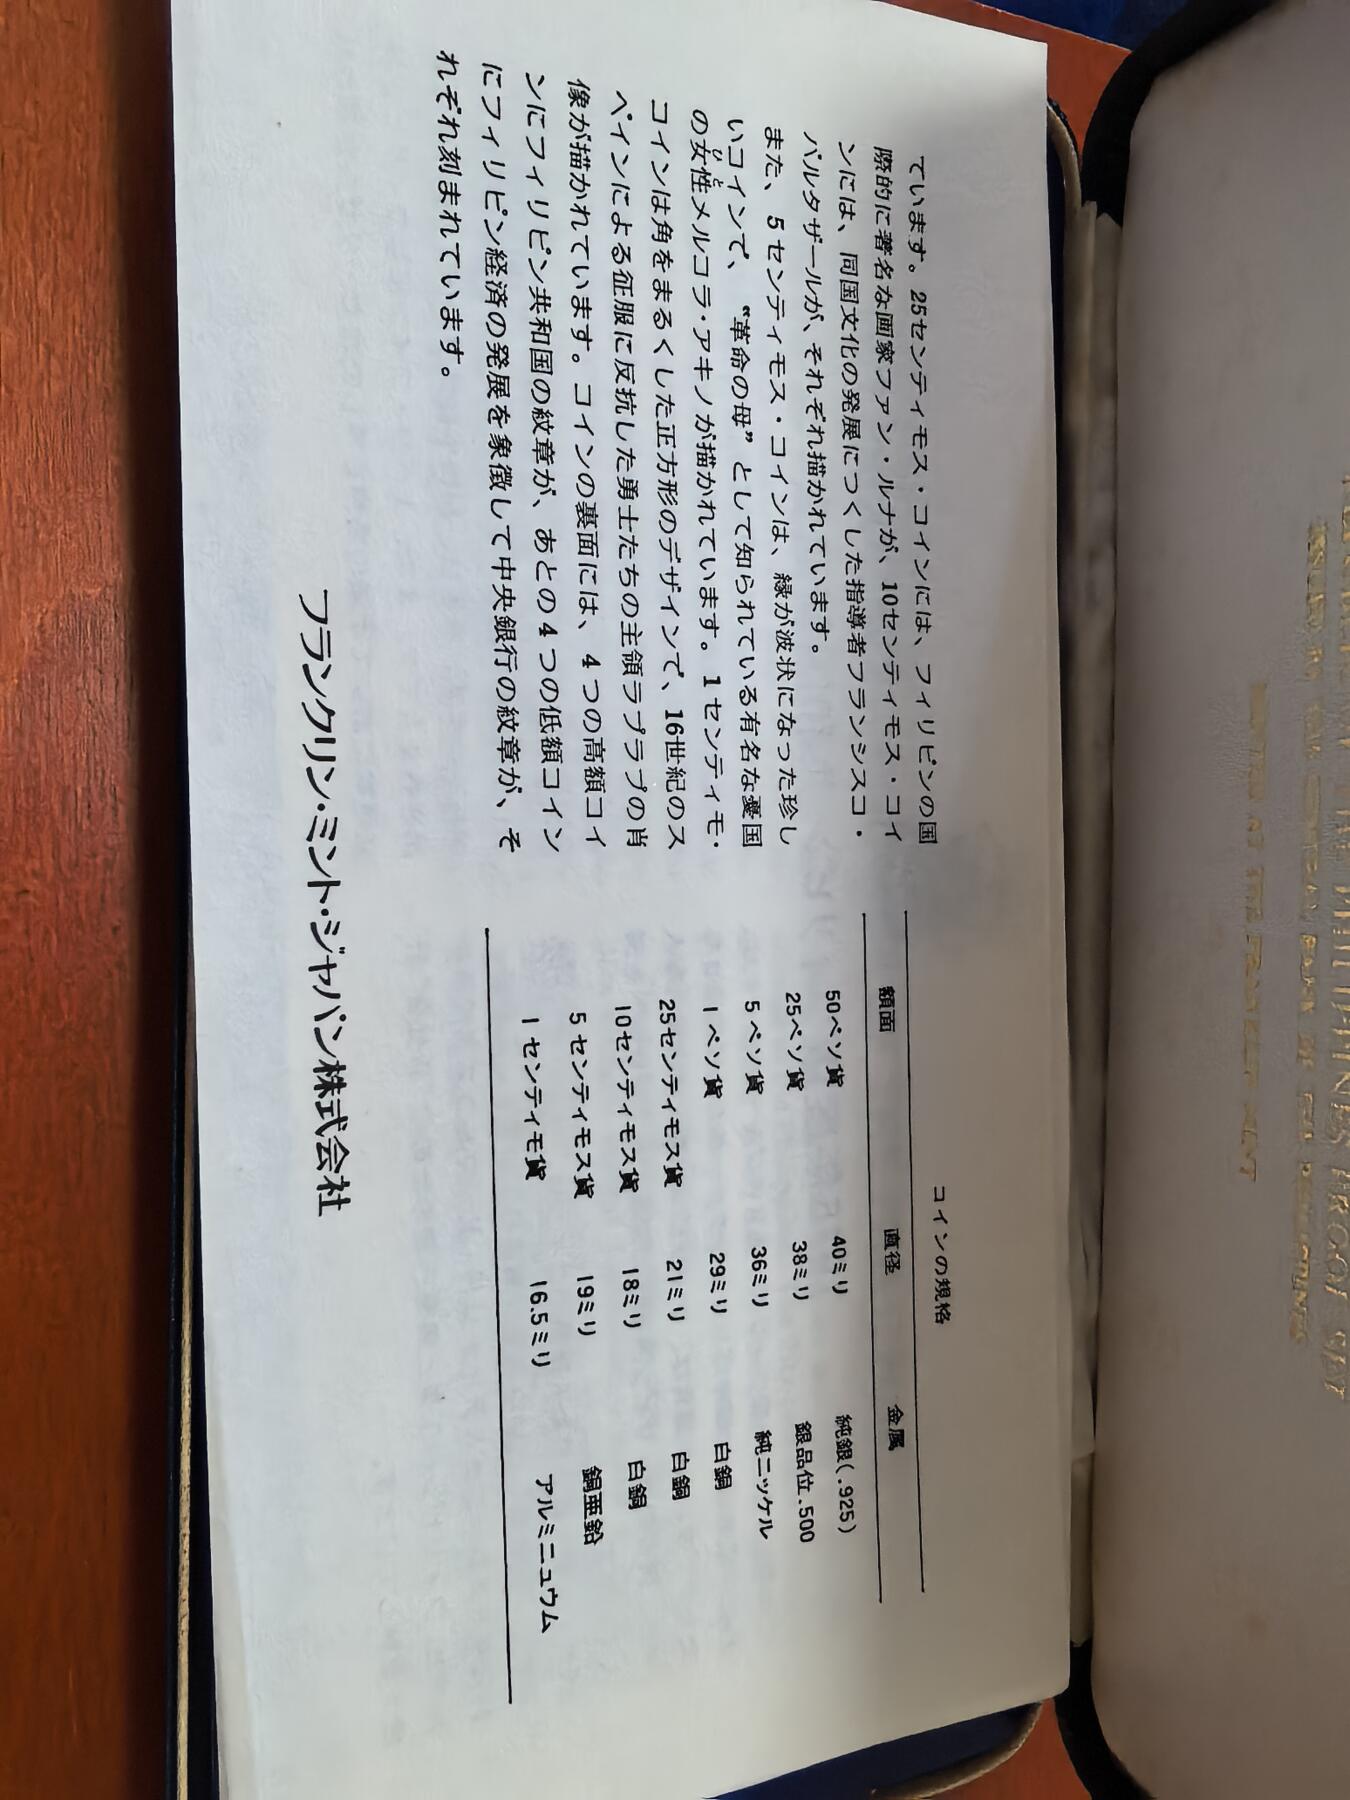 ています。25センティモス・コインには、フィリピンの国
際的に著名な画家ファン・ルナが、10センティモス・コイ
ンには、同国文化の発展につくした指導者フランシスコ・
バルタザールが、それぞれ描かれています。
また、5センティモス・コインは、縁が波状になった珍し
いコインで、“革命の母”として知られている有名な憂国
の女性メルコラ・アキノが描かれています。1センティモ・
ひと
コインは角をまるくした正方形のデザインで、16世紀のス
ペインによる征服に反抗した勇士たちの主領ラプラプの肖
像が描かれています。コインの裏面には、4つの高額コイ
ンにフィリピン共和国の紋章が、あとの4つの低額コイン
にフィリピン経済の発展を象徴して中央銀行の紋章が、そ
れぞれ刻まれています。
フランクリン・ミント・ジャパン株式会社
コインの規格
額面 直径 金属
50ペソ貨 40ミリ 純銀(.925)
25ペソ貨 38ミリ 銀品位.500
5ペソ貨 36ミリ 純ニッケル
1ペソ貨 29ミリ 白銅
25センティモス貨 21ミリ 白銅
10センティモス貨 18ミリ 白銅
5センティモス貨 19ミリ 銅亜鉛
1センティモ貨 16.5ミリ アルミニュウム
THE PHILIPPINES PROOF SET
ISSUED BY THE CENTRAL BANK OF THE PHILIPPINES
MINTED AT THE FRANKLIN MINT